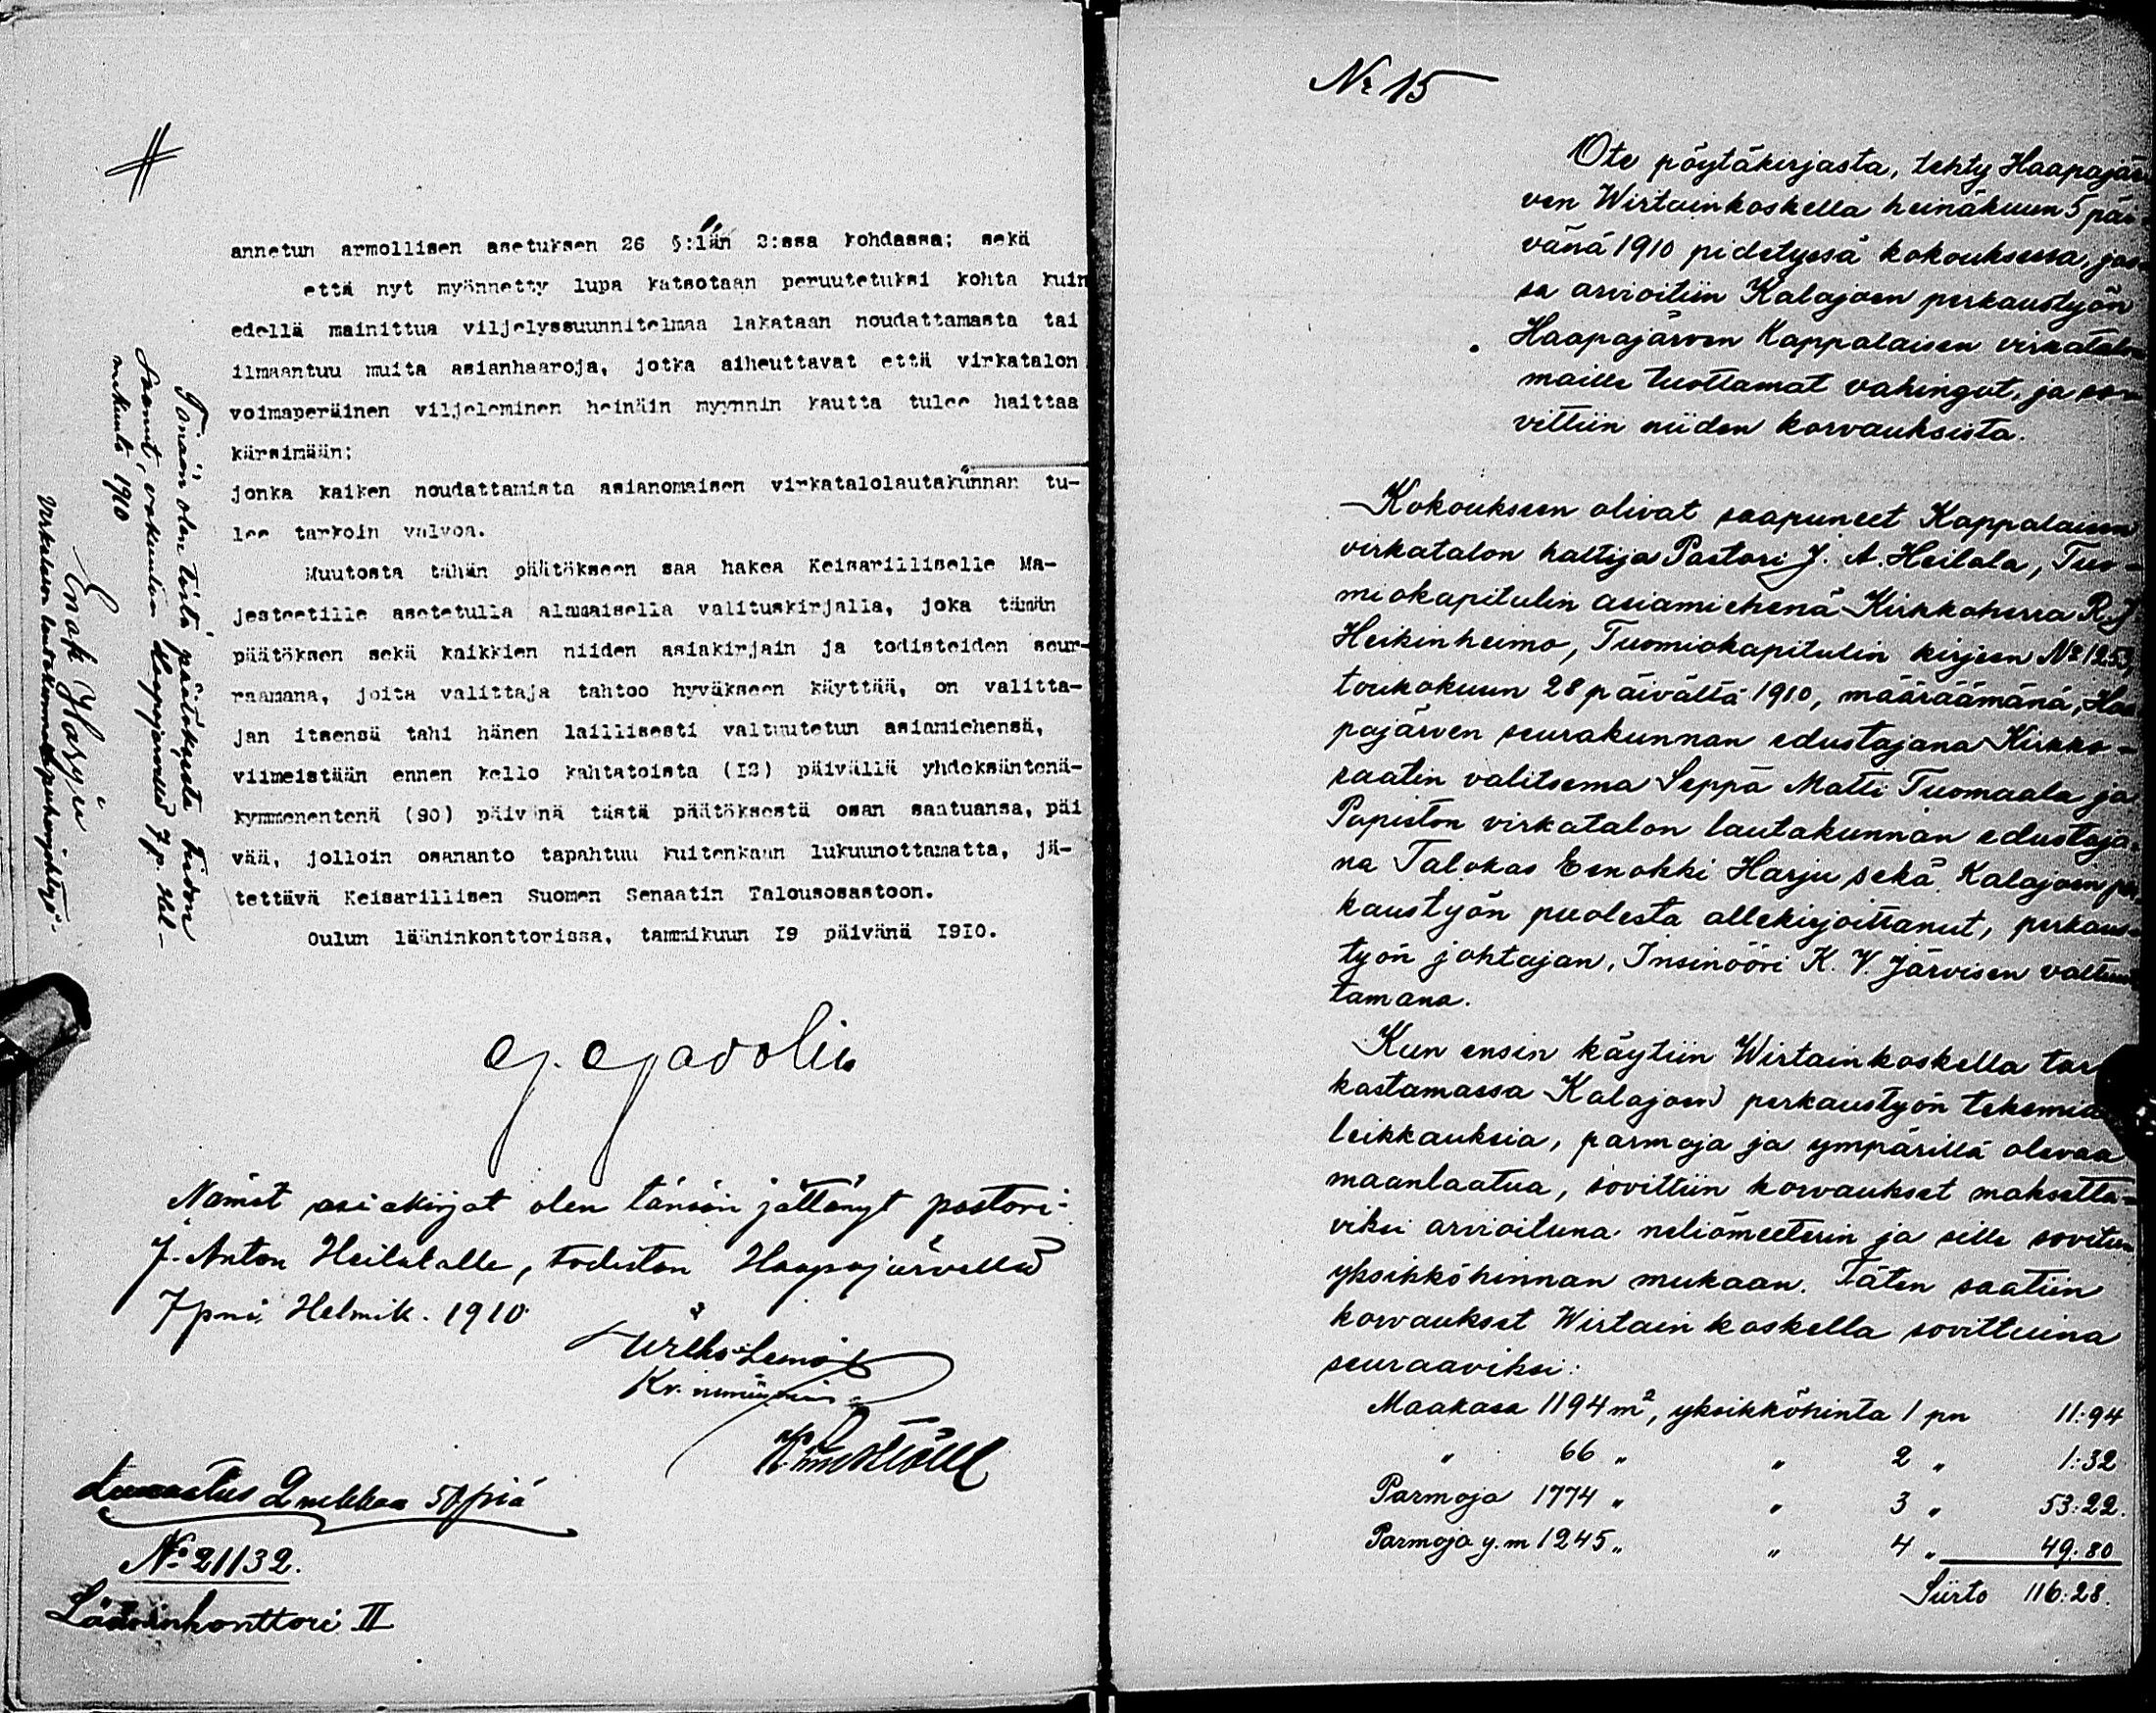 annetun armollisen asetuksen 26 §:län 2:ssa kohdassa; sekä
että nyt myönnetty lupa katsotaan peruutetuksi kohta kuin
edellä mainittua viljelyssuunnitelmaa lakataan noudattamasta tai
ilmaantuu muita asianhaaroja, jotka aiheuttavat että virkatalon
voimaperäinen viljeleminen heinäin myynnin kautta tulee haittaa
kärsimään;
jonka kaiken noudattamista asianomaisen virkatalolautakunnan tu-
lee tarkoin valvoa.
Muutosta tähän päätökseen saa hakea Keisarilliselle Ma-
jesteetille asetetulla alamaisella valituskirjalla, joka tämän
päätöksen sekä kaikkien niiden asiakirjain ja todisteiden seur-
raamana, joita valittaja tahtoo hyväkseen käyttää, on valitta-
jan itsensä tahi hänen laillisesti valtuutetun asiamiehensä,
viimeistään ennen kello kahtatoista (I2) päivällä yhdeksäntenä-
kymmenentenä (90) päivänä tästä päätöksestä osan saatuansa, päi
vää, jolloin osananto tapahtuu kuitenkaan lukuunottamatta, jä-
tettävä Keisarillisen Suomen Senaatin Talousosastoon.
Oulun lääninkonttorissa, tammikuun I9 päivänä I9I0.
Toinään olen tästä päätöksestä tiedon
saanut, vakuutan Haapajärvellä 7 p. Hel-
mikuuta 1910
Enok Harju
Virkatalon lautakunnan puheenjohtaja
Nämät asiakirjat olen tänään jättänyt pastori
J. Anton Heilalalle, todistan Haapajärvellä
7 pnä Helmik. 1910
Kr. nimismies
Lunastus 2 markkaa 50 piä
No 21132.
Lääninkonttori II
Nr 15
Ote pöytäkirjasta, tehty Haapajär-
ven Wirtainkoskella heinäkuun 5 päi-
vänä 1910 pidetyssä kokouksessa, jos-
sa arvioitiin Kalajoen perkaustyön
Haapajärven Kappalaisen virkatalon
maille tuottamat vahingot, ja so-
vittiin niiden korvauksista.
Kokoukseen olivat saapuneet Kappalaisen
virkatalon haltija Pastori J. A. Heilala, Tuo-
miokapitulin asiamiehenä Kirkkoherra R. J
Heikinheimo, Tuomiokapitulin kirjeen No 1253,
toukokuun 28 päivältä 1910, määräämänä, Haa
pajärven seurakunnan edustajana Kirkko-
raatin valitsema Seppä Matti Tuomaala ja
Papiston virkatalon lautakunnan edustaja-
na Talokas Eenokki Harju sekä Kalajoen per
kaustyön puolesta allekirjoittanut, perkaus-
työn johtajan, Insinööri K. V. Järvisen valtuut
tamana.
Kun ensin käytiin Wirtainkoskella tar
kastamassa Kalajoen perkaustyön tekemiä
leikkauksia, parmoja ja ympärillä olevaa
maanlaatua, sovittiin korvaukset maksetta-
viksi arvioituna neliömeeterin ja sille sovitun
yksikköhinnan mukaan. Täten saatiin
korvaukset Wirtainkoskella sovittuina
seuraaviksi:
Maakasa 1194 m², yksikköhinta 1 pn 11:94
" 66 " " 2 " 1:32
Parmoja 1774 " " 3 " 53:22.
Parmoja y.m 1245 " " 4 " 49:80
Siirto 116:28.